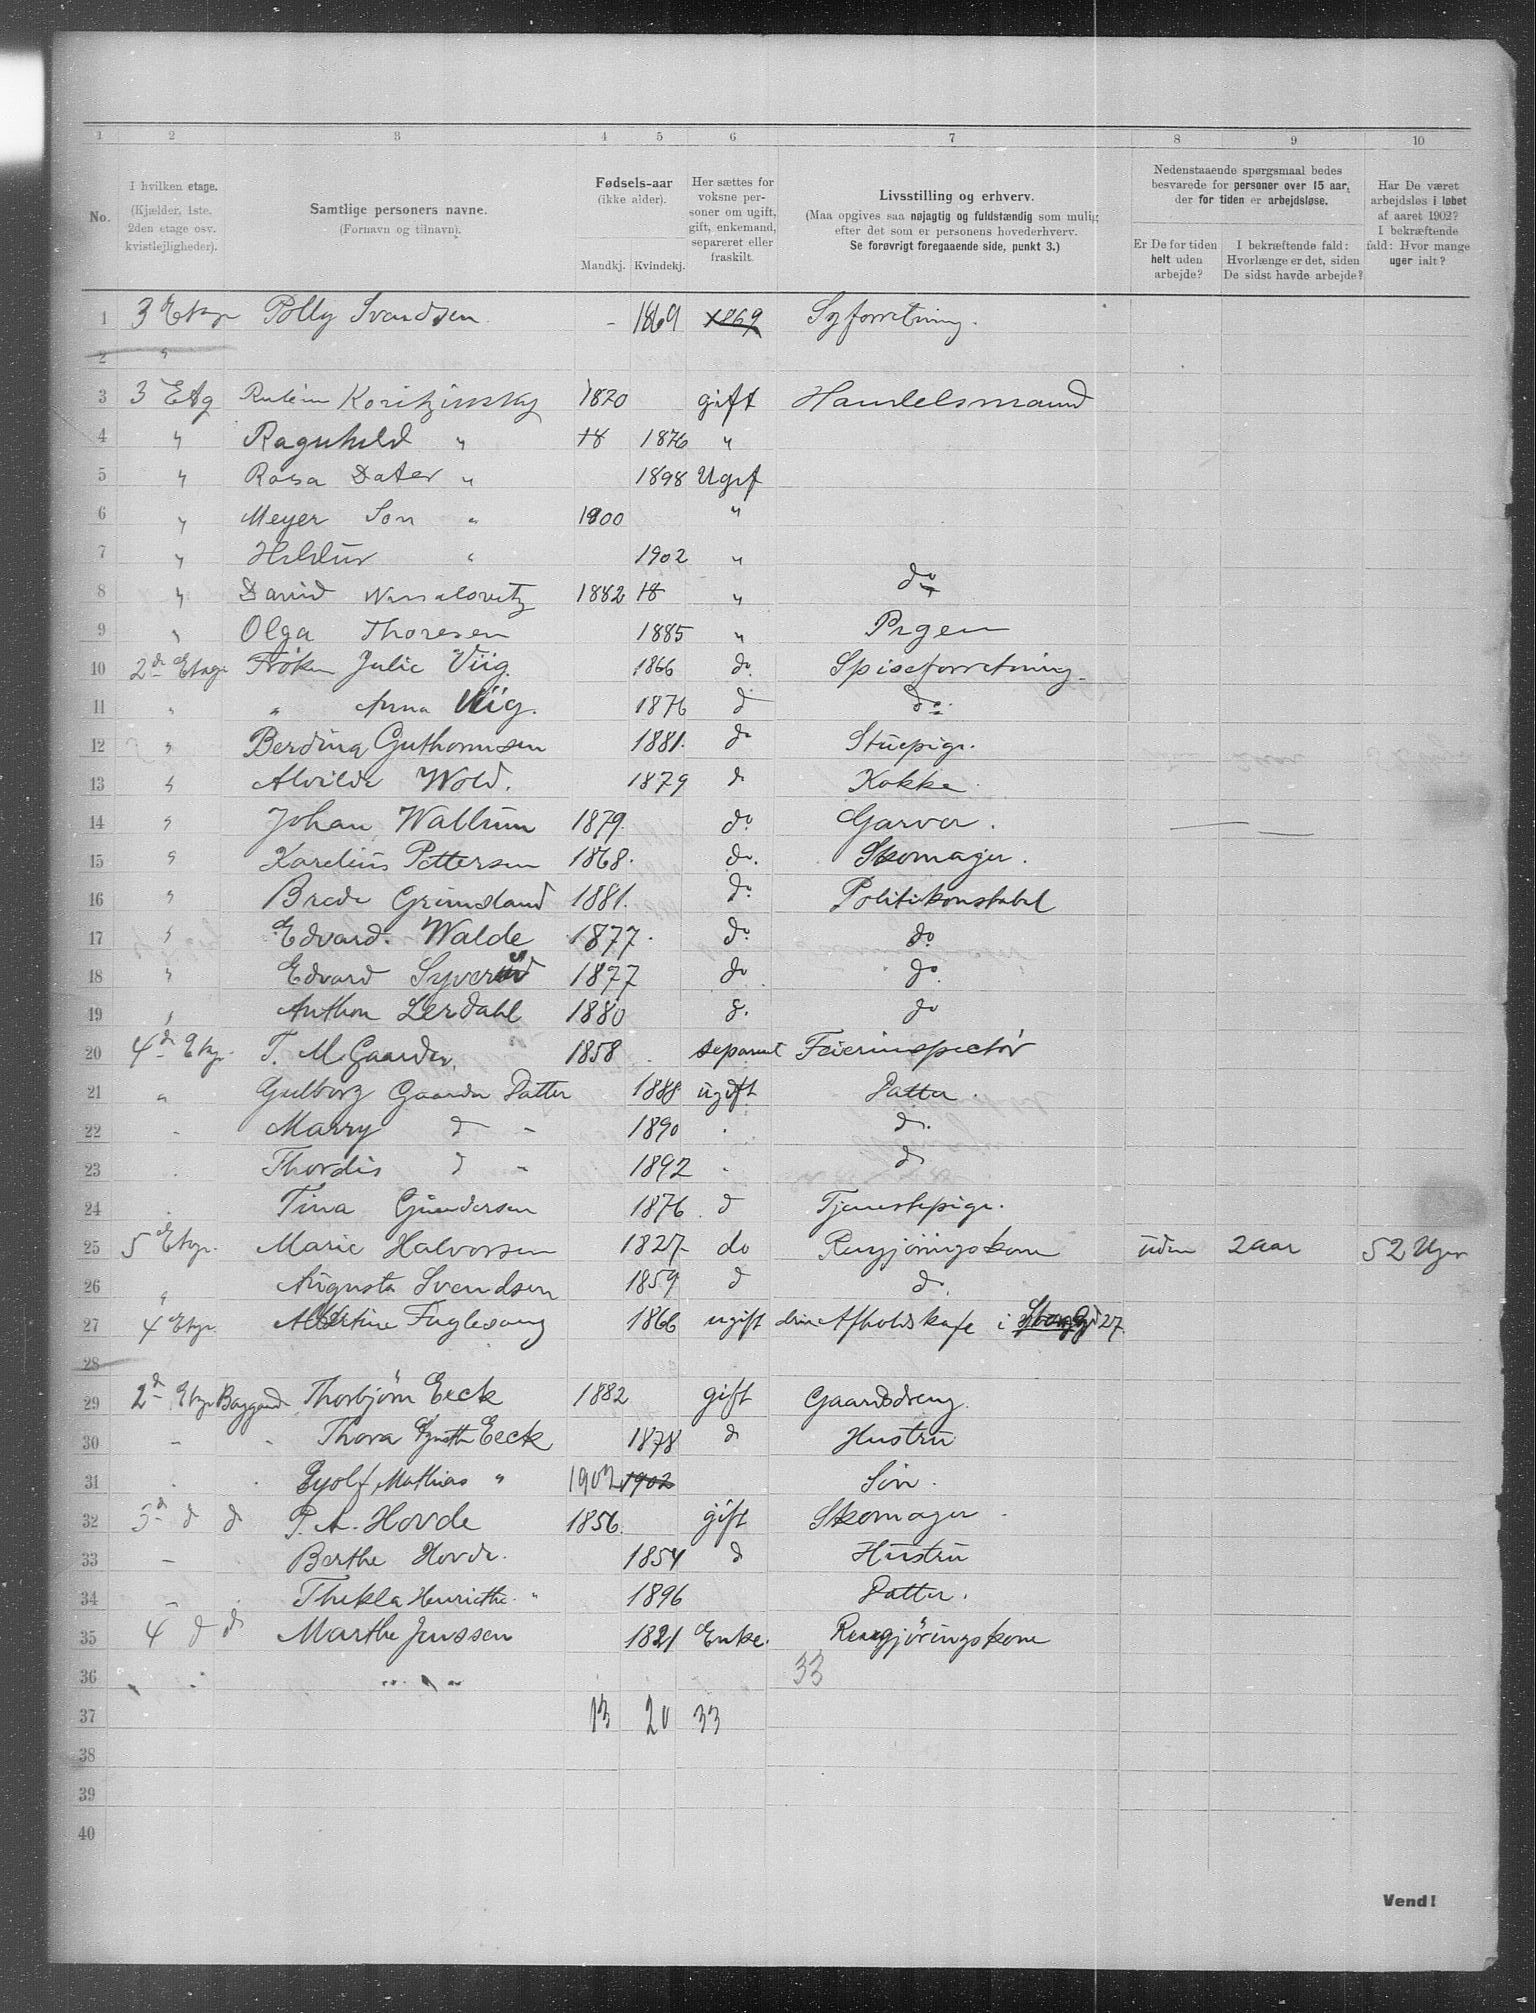 1 2 3 4 5 6 7 8 9 10
No.
I hvilken etage. (Kjælder, 1ste. 2den etage osv. kvistlejligheder).
Samtlige personers navne. (Fornavn og tilnavn).
Fødsels-aar (ikke alder).
Mandkj. Kvindekj.
Her sættes for voksne personer om ugift, gift, enkemand, separeret eller fraskilt.
Livsstilling og erhverv. (Maa opgives saa nøjagtig og fuldstændig som mulig efter det som er personens hovederhverv. Se forøvrigt foregaaende side, punkt 3.)
Nedenstaaende spørgsmaal bedes besvarede for personer over 15 aar, der for tiden er arbejdsløse.
Er De for tiden helt uden arbejde?
I bekræftende fald: Hvorlænge er det, siden De sidst havde arbejde?
Har De været arbejdsløs i løbet af aaret 1902? I bekræftende fald: Hvor mange uger ialt?
1 3 Etage Polly Svendsen - 1869 1869 Syforretning.
2 "
3 3 Etg Koritzinsky 1870 gift Handelsmand
4 " Ragnhild " 18 1876 "
5 " Rosa Dater " 1898 Ugif
6 " Meyer Son " 1900 "
7 " Hildur " 1902 "
8 " David 1882 18 " do
9 " Olga Thoresen 1885 " Pigen
10 2d Etage Frøken Julie Viig. 1866 do. Spiseforretning.
11 " " Anna Viig. 1876 d do.
12 " Berdina Guthormsen 1881. do Stuepige.
13 " Alvilde Wold. 1879 d Kokke
14 " Johan Wallum 1879. do. Garver.
15 " Karelius Pettersen 1868. do. Skomager.
16 " Brede Grimsland 1881. do Politikonstabel
17 " Edvard. Walde 1877. do. do
18 " Edvard Syverud 1877 do do
19 " Anthon Lerdahl 1880 d. do
20 4d Etg. T. M. Gaarder. 1858 separert Feierinspectør
21 " Gulborg Gaarder Datter 1888 ugift Datter.
22 " Marry d " 1890 " d.
23 " Thordis d " 1892 " d
24 " Tina Gundersen 1876 d Tjenestepige.
25 5 Etg. Marie Halvorsen 1827 do Rengjøringskone uden 2 aar 52 Uger
26 " Augusta Svendsen 1859 d d.
27 4 Etg. Albertine Fuglesang 1866 ugift Afholdskafe i Storg 27.
28
29 2d Etg Baggaard Thorbjørn Eeck 1882 gift Gaardsdreng.
30 " " Thora Eeck 1878 d Hustru
31 " " Eyolf Mathias " 1902 1902 Søn.
32 3d d d P. A. Hovde 1856. gift Skomager
33 - Berthe Hovde. 1854 d Hustru
34 - Thekla Henriethe. " 1896 Datter.
35 4 d d Marthe Jenssen 1821 Enke. Rengjøringskone
36 " " " " " 33
37 13 20 33
38
39
40
Vend!